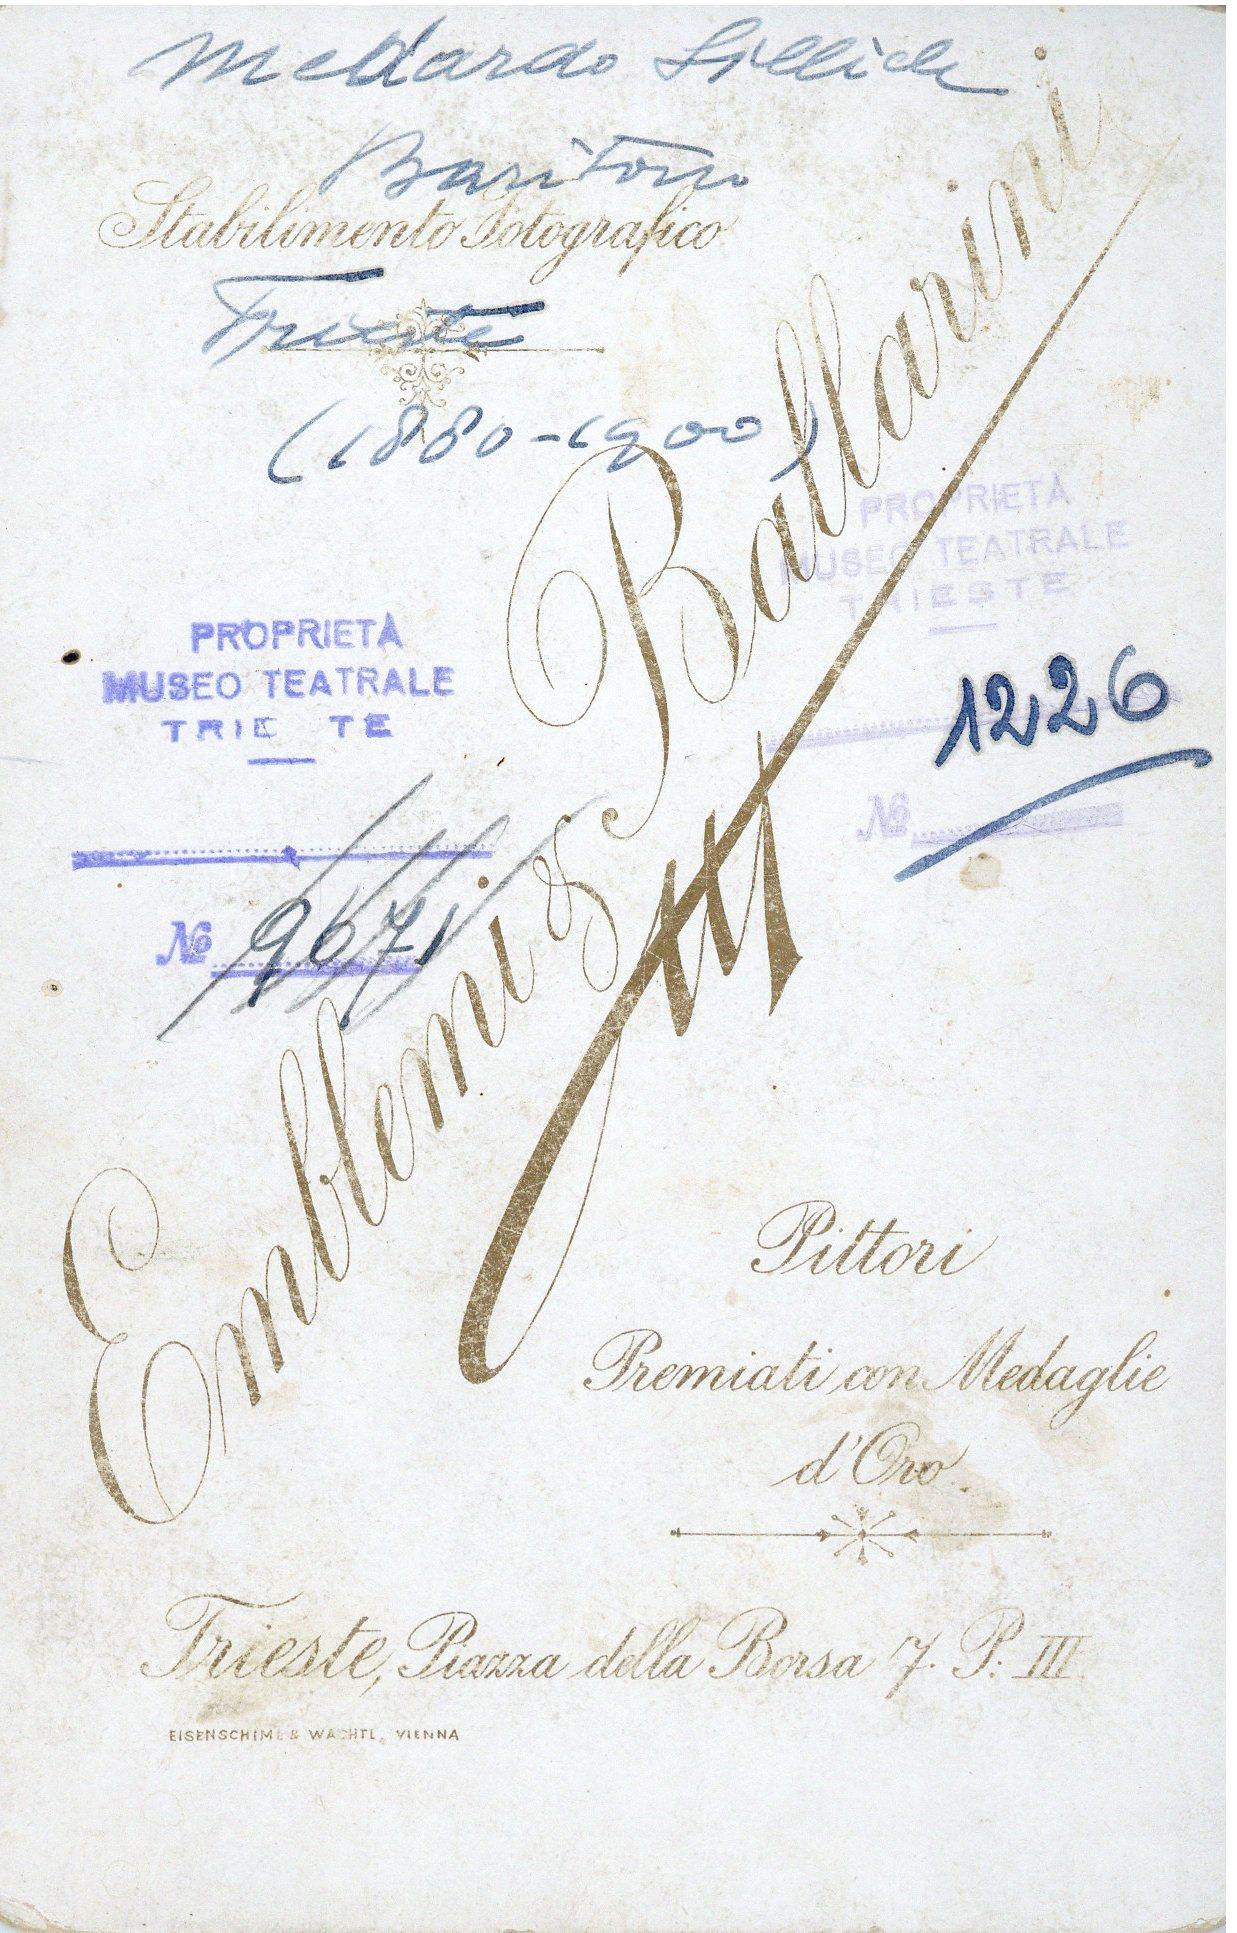 Medardo Sillich
Baritono
Stabilimento Fotografico
Trieste
(1880-1900)
Emblemi & Ballarini
PROPRIETÀ
MUSEO TEATRALE
TRIESTE
PROPRIETÀ
MUSEO TEATRALE
TRIE TE
1226
No
No 9671
Pittori
Premiati con Medaglie
d'Oro
Trieste, Piazza della Borsa 7. P. III
EISENSCHIML & WACHTL, VIENNA